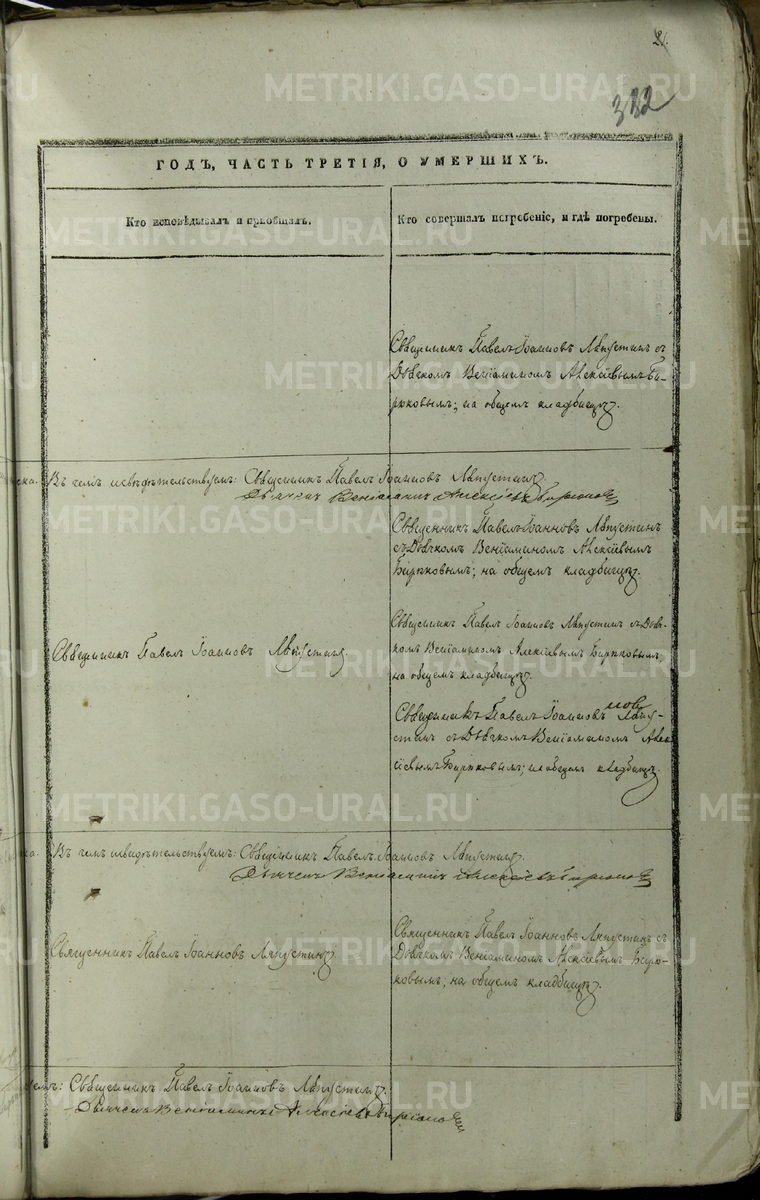 21.
322
ГОДЪ, ЧАСТЬ ТРЕТІЯ, О УМЕРШИХЪ.
Кто исповѣдывалъ и пріобщалъ.
Кто совершалъ погребеніе, и гдѣ погребены.
Священникъ Павелъ Іоанновъ Ляпустинъ съ
Дьячкомъ Веніаминомъ Алексѣевымъ Би-
рюковымъ; на общемъ кладбищѣ.
Въ чемъ и свидѣтельствуемъ: Священникъ Павелъ Іоанновъ Ляпустинъ
Дьячекъ Веніаминъ Алексѣевъ Бирюковъ
Священникъ Павелъ Іоанновъ Ляпустинъ
съ Дьячкомъ Веніаминомъ Алексѣевымъ
Бирюковымъ; на общемъ кладбищѣ.
Священникъ Павелъ Іоанновъ Ляпустинъ.
Священникъ Павелъ Іоанновъ Ляпустинъ съ Дьяч-
комъ Веніаминомъ Алексѣевымъ Бирюковымъ
на общемъ кладбищѣ.
Священникъ Павелъ Іоанновъ Ляпу-
стинъ съ Дьячкомъ Веніаминомъ Алек-
сѣевымъ Бирюковымъ; на общемъ кладбищѣ.
Въ чемъ свидѣтельствуемъ: Священникъ Павелъ Іоанновъ Ляпустинъ
Дьячекъ Веніаминъ Алексѣевъ Бирюковъ
Священникъ Павелъ Іоанновъ Ляпустинъ.
Священникъ Павелъ Іоанновъ Ляпустинъ съ
Дьячкомъ Веніаминомъ Алексѣевымъ Бирю-
ковымъ; на общемъ кладбищѣ.
Священникъ Павелъ Іоанновъ Ляпустинъ.
Дьячекъ Веніаминъ Алексѣевъ Бирюковъ
METRIKI.GASO-URAL.RU